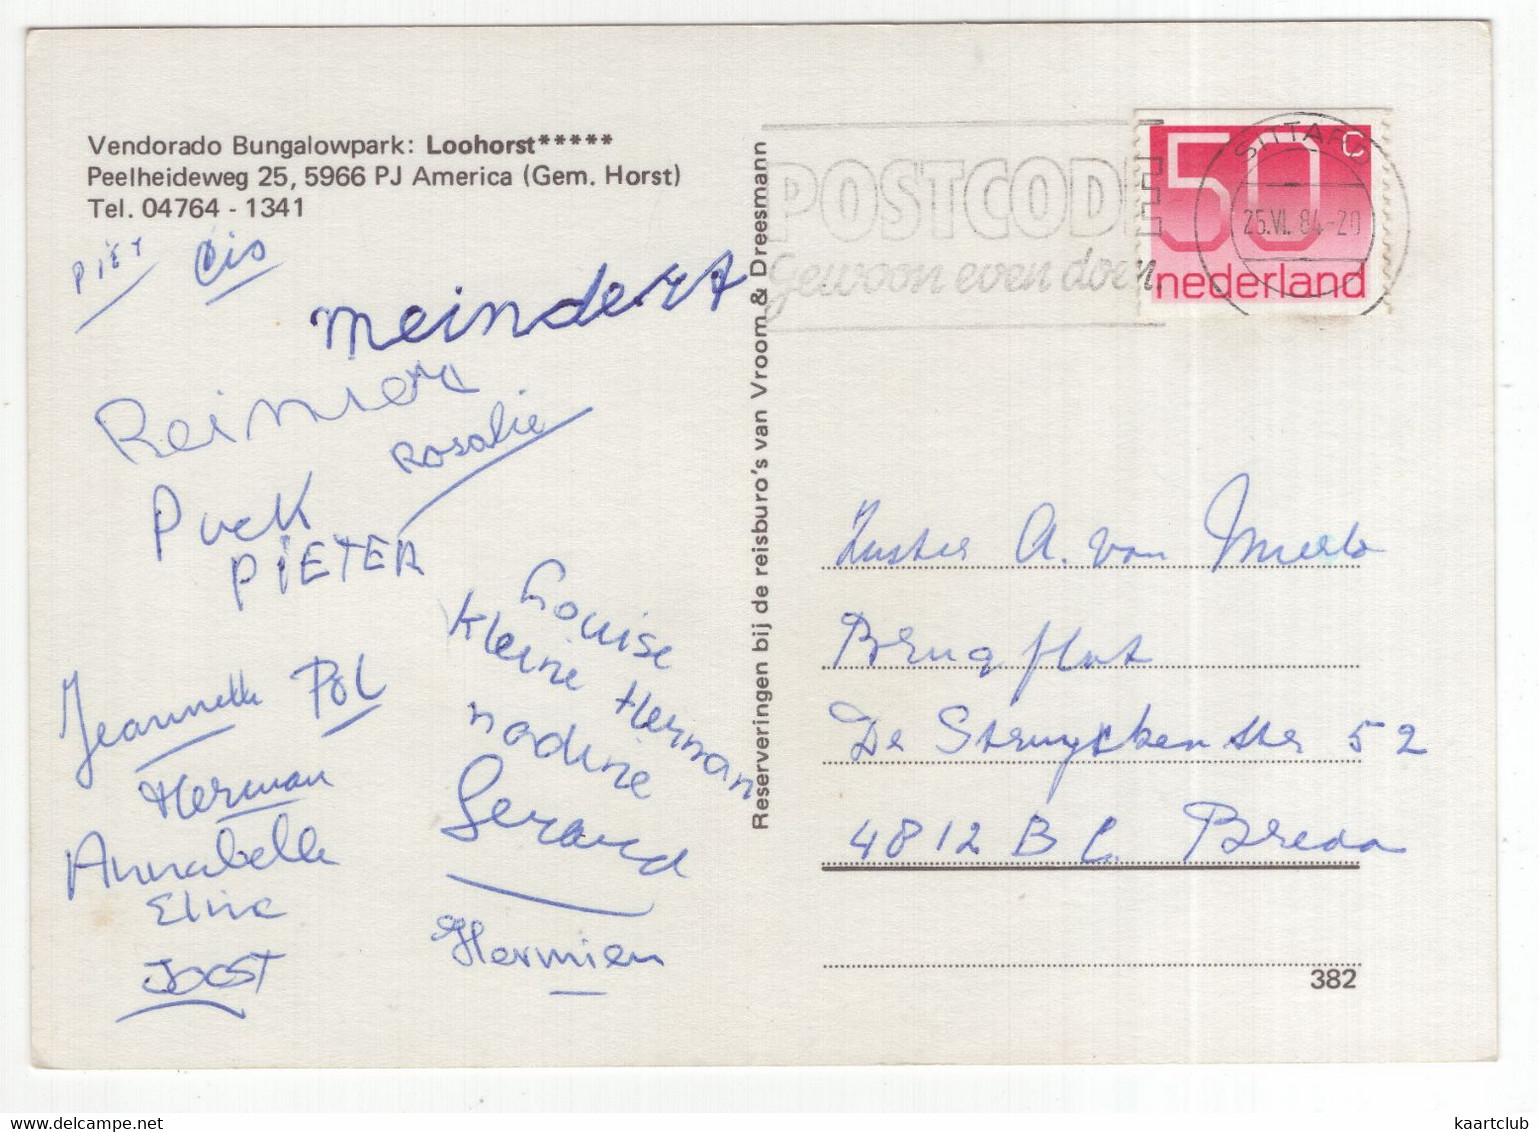 Vendorado Bungalowpark: Loohorst*****
Peelheideweg 25, 5966 PJ America (Gem. Horst)
Tel. 04764 - 1341
PIET Cis
meindert
Reinier
Rosalie
Puck
PIETER
Louise
Kleine Herman
nadine
Gerard
Hermien
Jeannette Pol
Herman
Annabelle
Eline
JOOST
Reserveringen bij de reisburo's van Vroom & Dreesmann
POSTCODE
gewoon even doen.
50 C
nederland
SITTARD
25.VI.84-20
Zuster A. van Mierlo
Brugflat
De Struyckenstr 52
4812 BC Breda
382
kaartclub